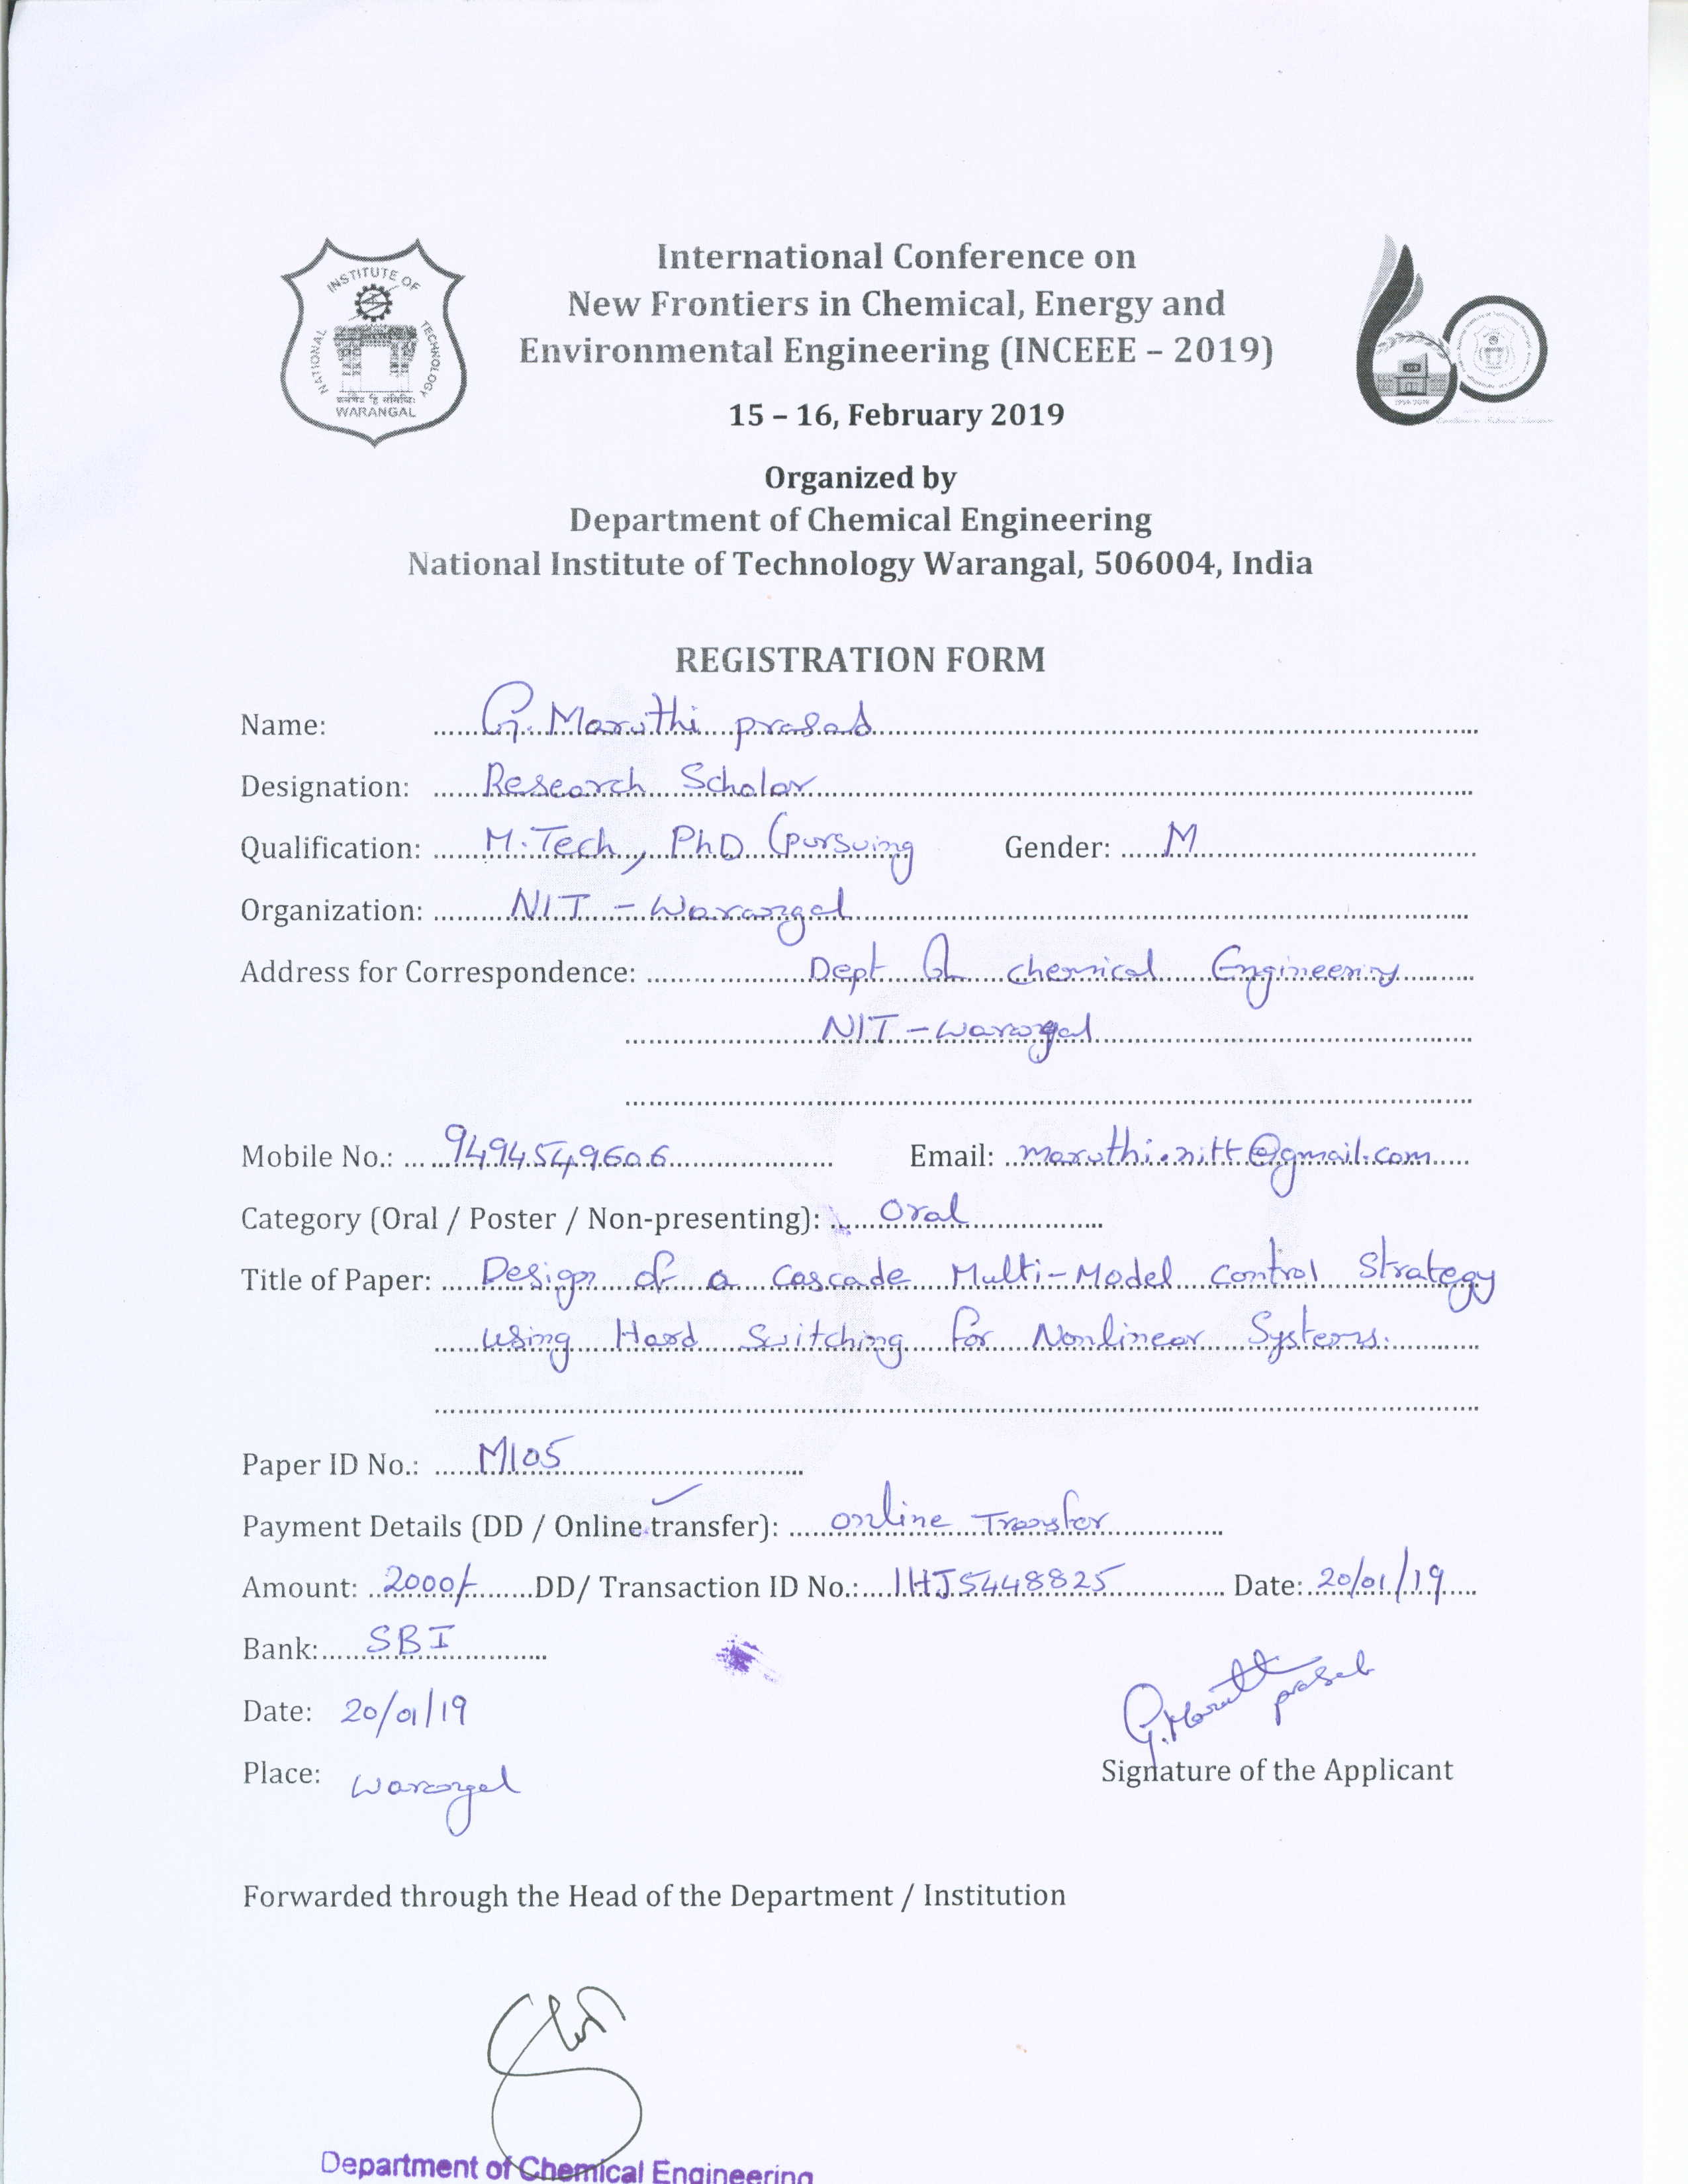 International Conference on
New Frontiers in Chemical, Energy and
Environmental Engineering (INCEEE – 2019)
15 – 16, February 2019
NATIONAL INSTITUTE OF TECHNOLOGY
WARANGAL
Organized by
Department of Chemical Engineering
National Institute of Technology Warangal, 506004, India
REGISTRATION FORM
Name: G. Maruthi prasad
Designation: Research Scholar
Qualification: M.Tech, PhD (pursuing Gender: M
Organization: NIT - Warangal
Address for Correspondence: Dept of chemical Engineering
NIT - Warangal
Mobile No.: 9494549606 Email: maruthi.nitt@gmail.com
Category (Oral / Poster / Non-presenting): Oral
Title of Paper: Design of a Cascade Multi-Model control Strategy
using Hard Switching for Nonlinear Systems.
Paper ID No.: M105
Payment Details (DD / Online transfer): online Transfer
Amount: 2000/- DD/ Transaction ID No.: IHJ5448825 Date: 20/01/19
Bank: SBI
Date: 20/01/19
Place: Warangal
G. Maruthi prasad
Signature of the Applicant
Forwarded through the Head of the Department / Institution
Department of Chemical Engineering